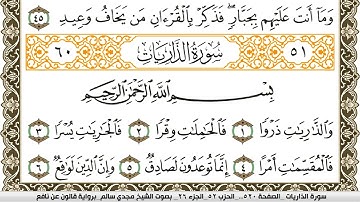 وَمَا أَنتَ عَلَيْهِم بِجَبَّارٍ فَذَكِّرْ بِالْقُرْءَانِ مَن يَخَافُ وَعِيدِ ٤٥
٥١ سُورَةُ الذَّارِيَاتِ ٦٠
بِسْمِ اللَّهِ الرَّحْمَٰنِ الرَّحِيمِ
وَالذَّارِيَاتِ ذَرْوًا ١ فَالْحَامِلَاتِ وِقْرًا ٢ فَالْجَارِيَاتِ يُسْرًا ٣
فَالْمُقَسِّمَاتِ أَمْرًا ٤ إِنَّمَا تُوعَدُونَ لَصَادِقٌ ٥ وَإِنَّ الدِّينَ لَوَاقِعٌ ٦
سورة الذاريات _ الصفحة ٥٢٠ _ الحزب ٥٢ _ الجزء ٢٦ _ بصوت الشيخ مجدي سالم _ برواية قالون عن نافع